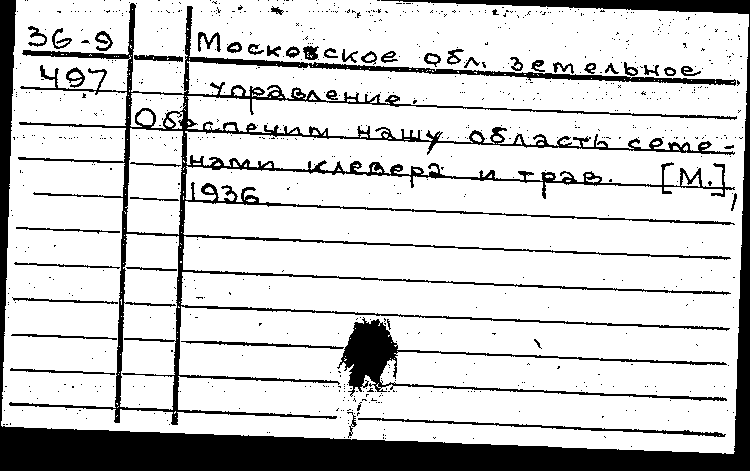 36-9 Московское обл. земельное
497 управление.
Обеспечим нашу область семе-
нами клевера и трав. [М.],
1936.